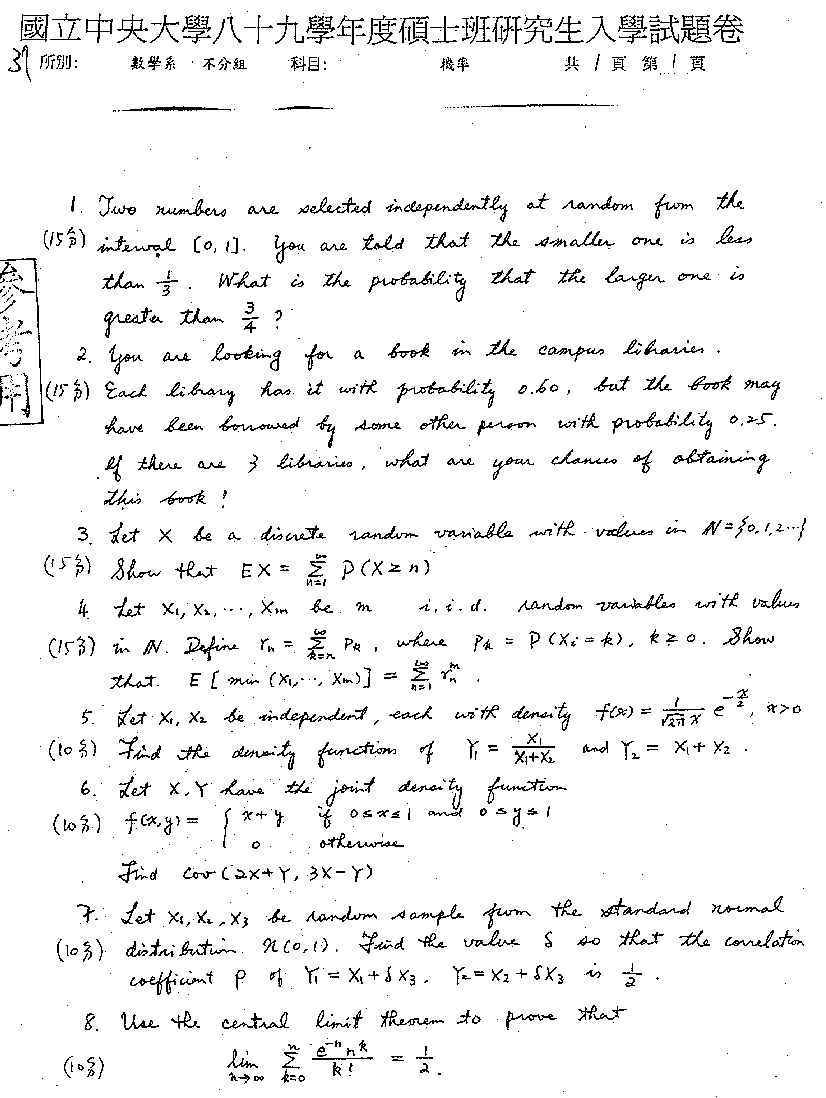 國立中央大學八十九學年度碩士班研究生入學試題卷
37 所別: 數學系 不分組 科目: 機率 共 1 頁 第 1 頁
參考用
1. Two numbers are selected independently at random from the
(15分) interval [0, 1]. You are told that the smaller one is less
than 1/3. What is the probability that the larger one is
greater than 3/4 ?
2. You are looking for a book in the campus libraries.
(15分) Each library has it with probability 0.60, but the book may
have been borrowed by some other person with probability 0.25.
If there are 3 libraries, what are your chances of obtaining
this book !
3. Let X be a discrete random variable with values in N = {0,1,2...}
(15分) Show that EX = ∑_{n=1}^{∞} P(X ≥ n)
4. Let X₁, X₂, ..., Xm be m i.i.d. random variables with values
(15分) in N. Define rₙ = ∑_{k=n}^{∞} Pₖ, where Pₖ = P(Xᵢ = k), k ≥ 0. Show
that. E [ min (X₁, ..., Xm)] = ∑_{n=1}^{∞} rₙ^m.
5. Let X₁, X₂ be independent, each with density f(x) = 1/(√(2π) x) e^{-x/2}, x>0
(10分) Find the density functions of Y₁ = X₁/(X₁+X₂) and Y₂ = X₁ + X₂.
6. Let X, Y have the joint density function
(10分) f(x,y) = { x+y if 0≤x≤1 and 0≤y≤1
0 otherwise
Find cov(2X+Y, 3X-Y)
7. Let X₁, X₂, X₃ be random sample from the standard normal
(10分) distribution n(0,1). Find the value δ so that the correlation
coefficient ρ of Y₁ = X₁ + δX₃, Y₂ = X₂ + δX₃ is 1/2.
8. Use the central limit theorem to prove that
(10分) lim_{n→∞} ∑_{k=0}^{n} e^{-n} n^k / k! = 1/2.